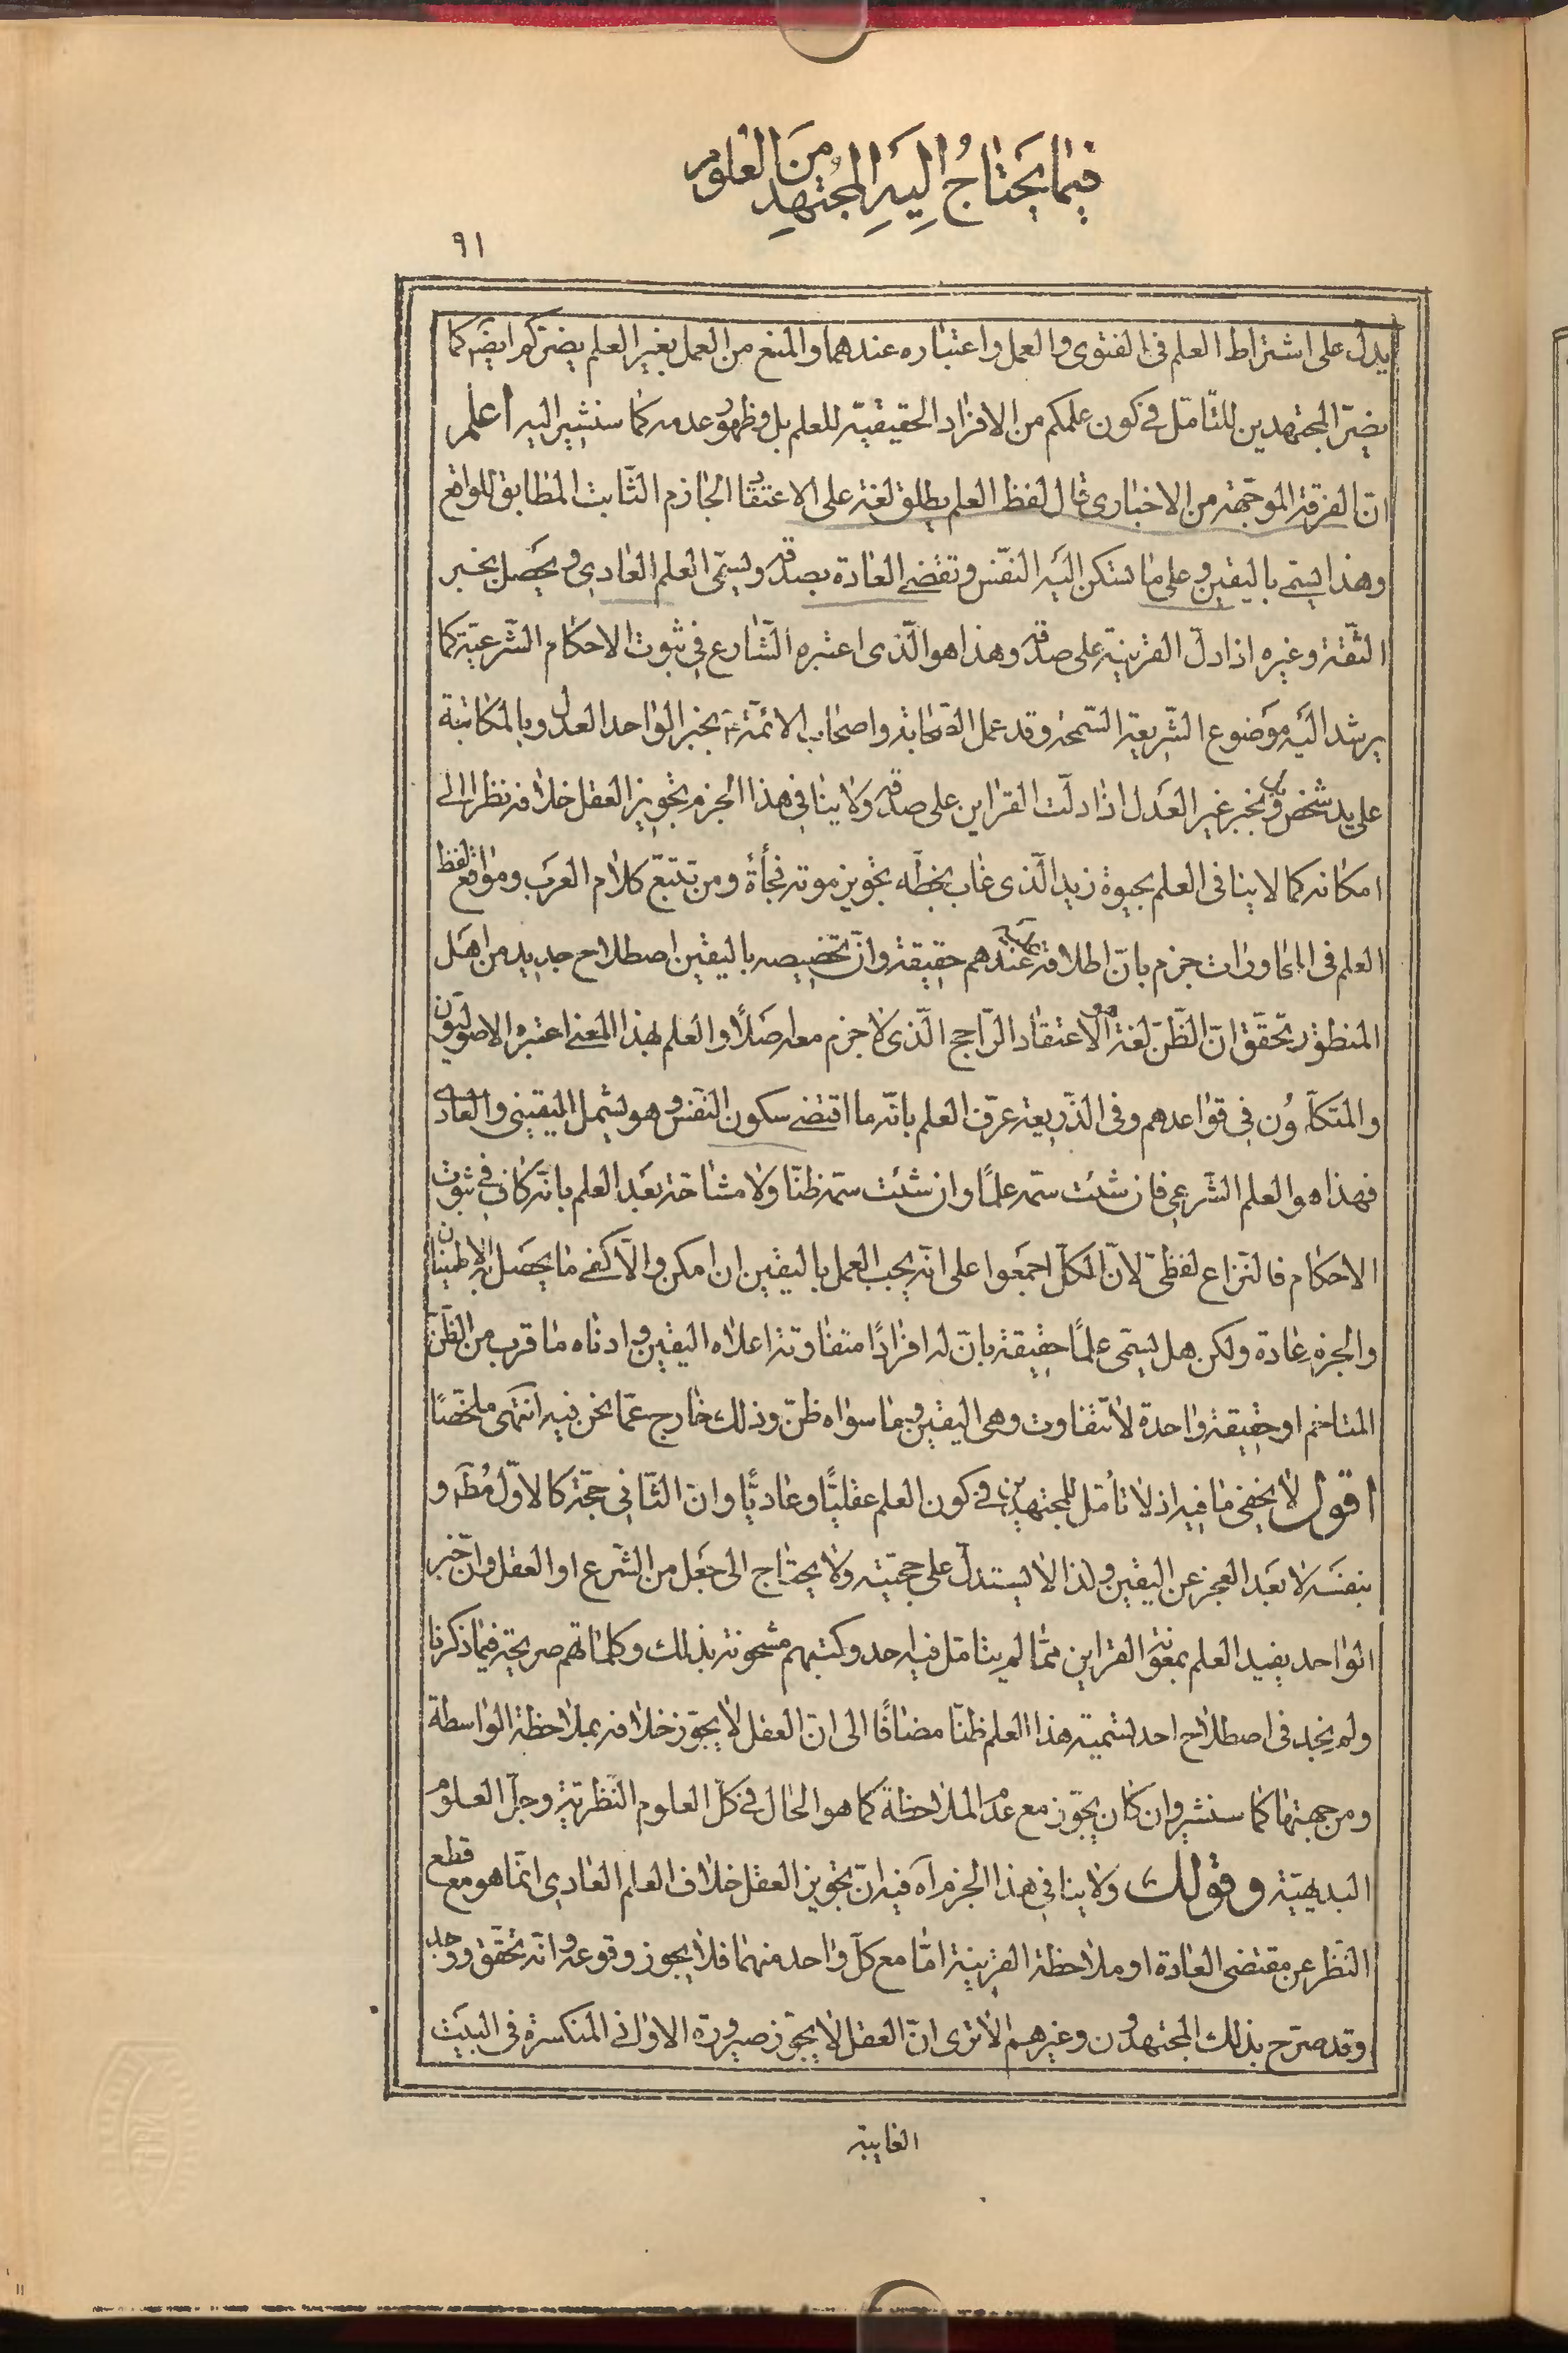 فيما يحتاج اليه المجتهد من العلوم
٩١
يدل على اشتراط العلم فى الفتوى والعمل واعتباره عندهما والمنع من العمل بغير العلم يضركم ايضه كما
يضر المجتهدين للتامل فى كون علمكم من الافراد الحقيقية للعلم بل وظهور عدمه كما سنشير اليه اعلم
ان الفرقة الموجهة من الاخبارى قال لفظ العلم يطلق لغة على الاعتقاد الجازم الثابت المطابق للواقع
وهذا يسمى باليقين وعلى ما تسكن اليه النفس وتقضى العادة بصدقه ويسمى العلم العادى ويحصل بخبر
الثقة وغيره اذا دل القرينة على صدقه وهذا هو الذى اعتبره الشارع فى ثبوت الاحكام الشرعية كما
يرشد اليه موضوع الشريعة السمحة وقد عمل الصحابة واصحاب الائمة ع بخبر الواحد العدل وبالمكاتبة
على يد شخص بل وبخبر غير العدل اذا دلت القراين على صدقه ولا ينافى هذا الجزم تجويز العقل خلافه نظرا الى
امكانه كما لا ينافى العلم بحيوة زيد الذى غاب لحظة تجويز موته فجأة ومن تتبع كلام العرب ومواقع لفظ
العلم فى المحاورات جزم بان اطلاقه عليه عندهم حقيقة وان تخصيصه باليقين اصطلاح جديد من اهل
المنطق وتحقق ان الظن لغة هو الاعتقاد الراجح الذى لا جزم معه اصلاً والعلم بهذا المعنى اعتبره الاصوليون
والمتكلمون فى قواعدهم وفى الذريعة عرف العلم بانه ما اقتضى سكون النفس وهو يشمل اليقينى والعادى
فهذا هو العلم الشرعى فان شئت سمه علمًا وان شئت سمه ظنًا ولا مشاحة بعد العلم بانه كاف فى ثبوت
الاحكام فالنزاع لفظى لان الكل اجمعوا على انه يجب العمل باليقين ان امكن والا كفى ما يحصل به الاطمينان
والجزم عادة ولكن هل يسمى علمًا حقيقة بان له افرادًا متفاوتة اعلاه اليقين وادناه ما قرب من الظن
المتاخم او حقيقة واحدة لا تتفاوت وهى اليقين وما سواه ظن وذلك خارج عما نحن فيه انتهى ملخصًا
اقول لا يخفى ما فيه اذ لا تأمل للمجتهدين فى كون العلم عقليًا وعاديًا وان الثانى حجة كالاول مطه و
بنفسه لا بعد العجز عن اليقين ولذا لا يستدل على حجيته ولا يحتاج الى جعل من الشرع او العقل وان خبر
الواحد يفيد العلم بمعونة القراين مما لم يتامل فيه احد وكتبهم مشحونة بذلك وكلماتهم صريحة فيما ذكرنا
ولم نجد فى اصطلاح احد تسمية هذا العلم ظنًا مضافًا الى ان العقل لا يجوز خلافه بملاحظة الواسطة
ومن جهتها كما سنشير وان كان يجوز مع عدم الملاحظة كما هو الحال فى كل العلوم النظرية وجل العلوم
البديهية وقولك ولا ينافى هذا الجزم آه فيه ان تجويز العقل خلاف العلم العادى انما هو مع قطع
النظر عن مقتضى العادة او ملاحظة القرينة اما مع كل واحد منهما فلا يجوز وقوعه وانه تحقق ووجد
وقد صرح بذلك المجتهدون وغيرهم الا ترى ان العقل لا يجوز صيرورة الاوانى المنكسرة فى البيت
الغايبة